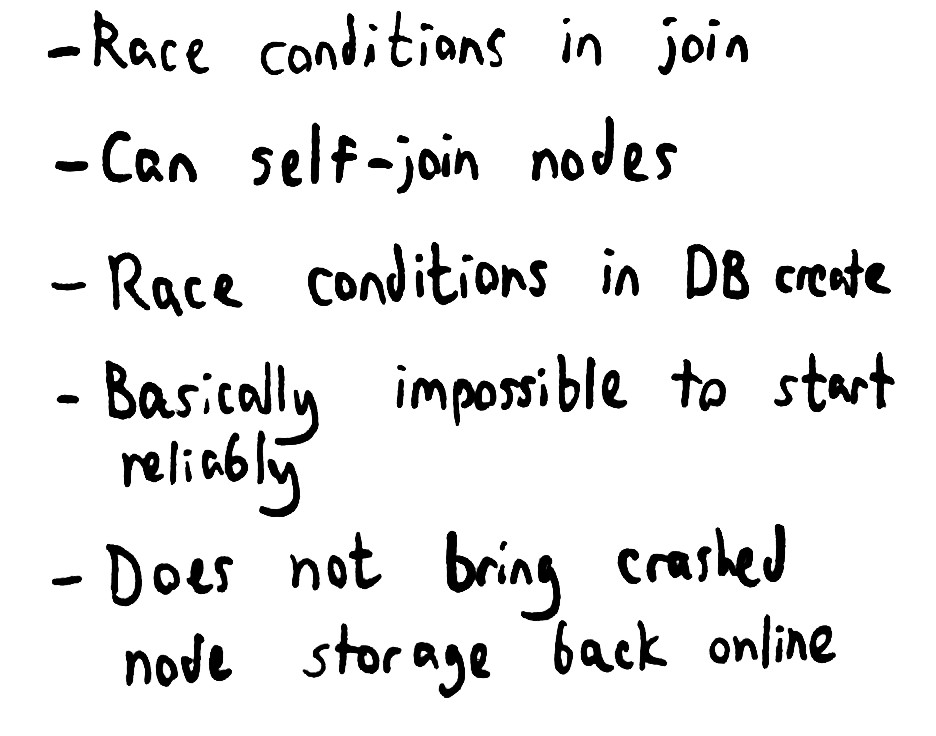 - Race conditions in join
- Can self-join nodes
- Race conditions in DB create
- Basically impossible to start
reliably
- Does not bring crashed
node storage back online